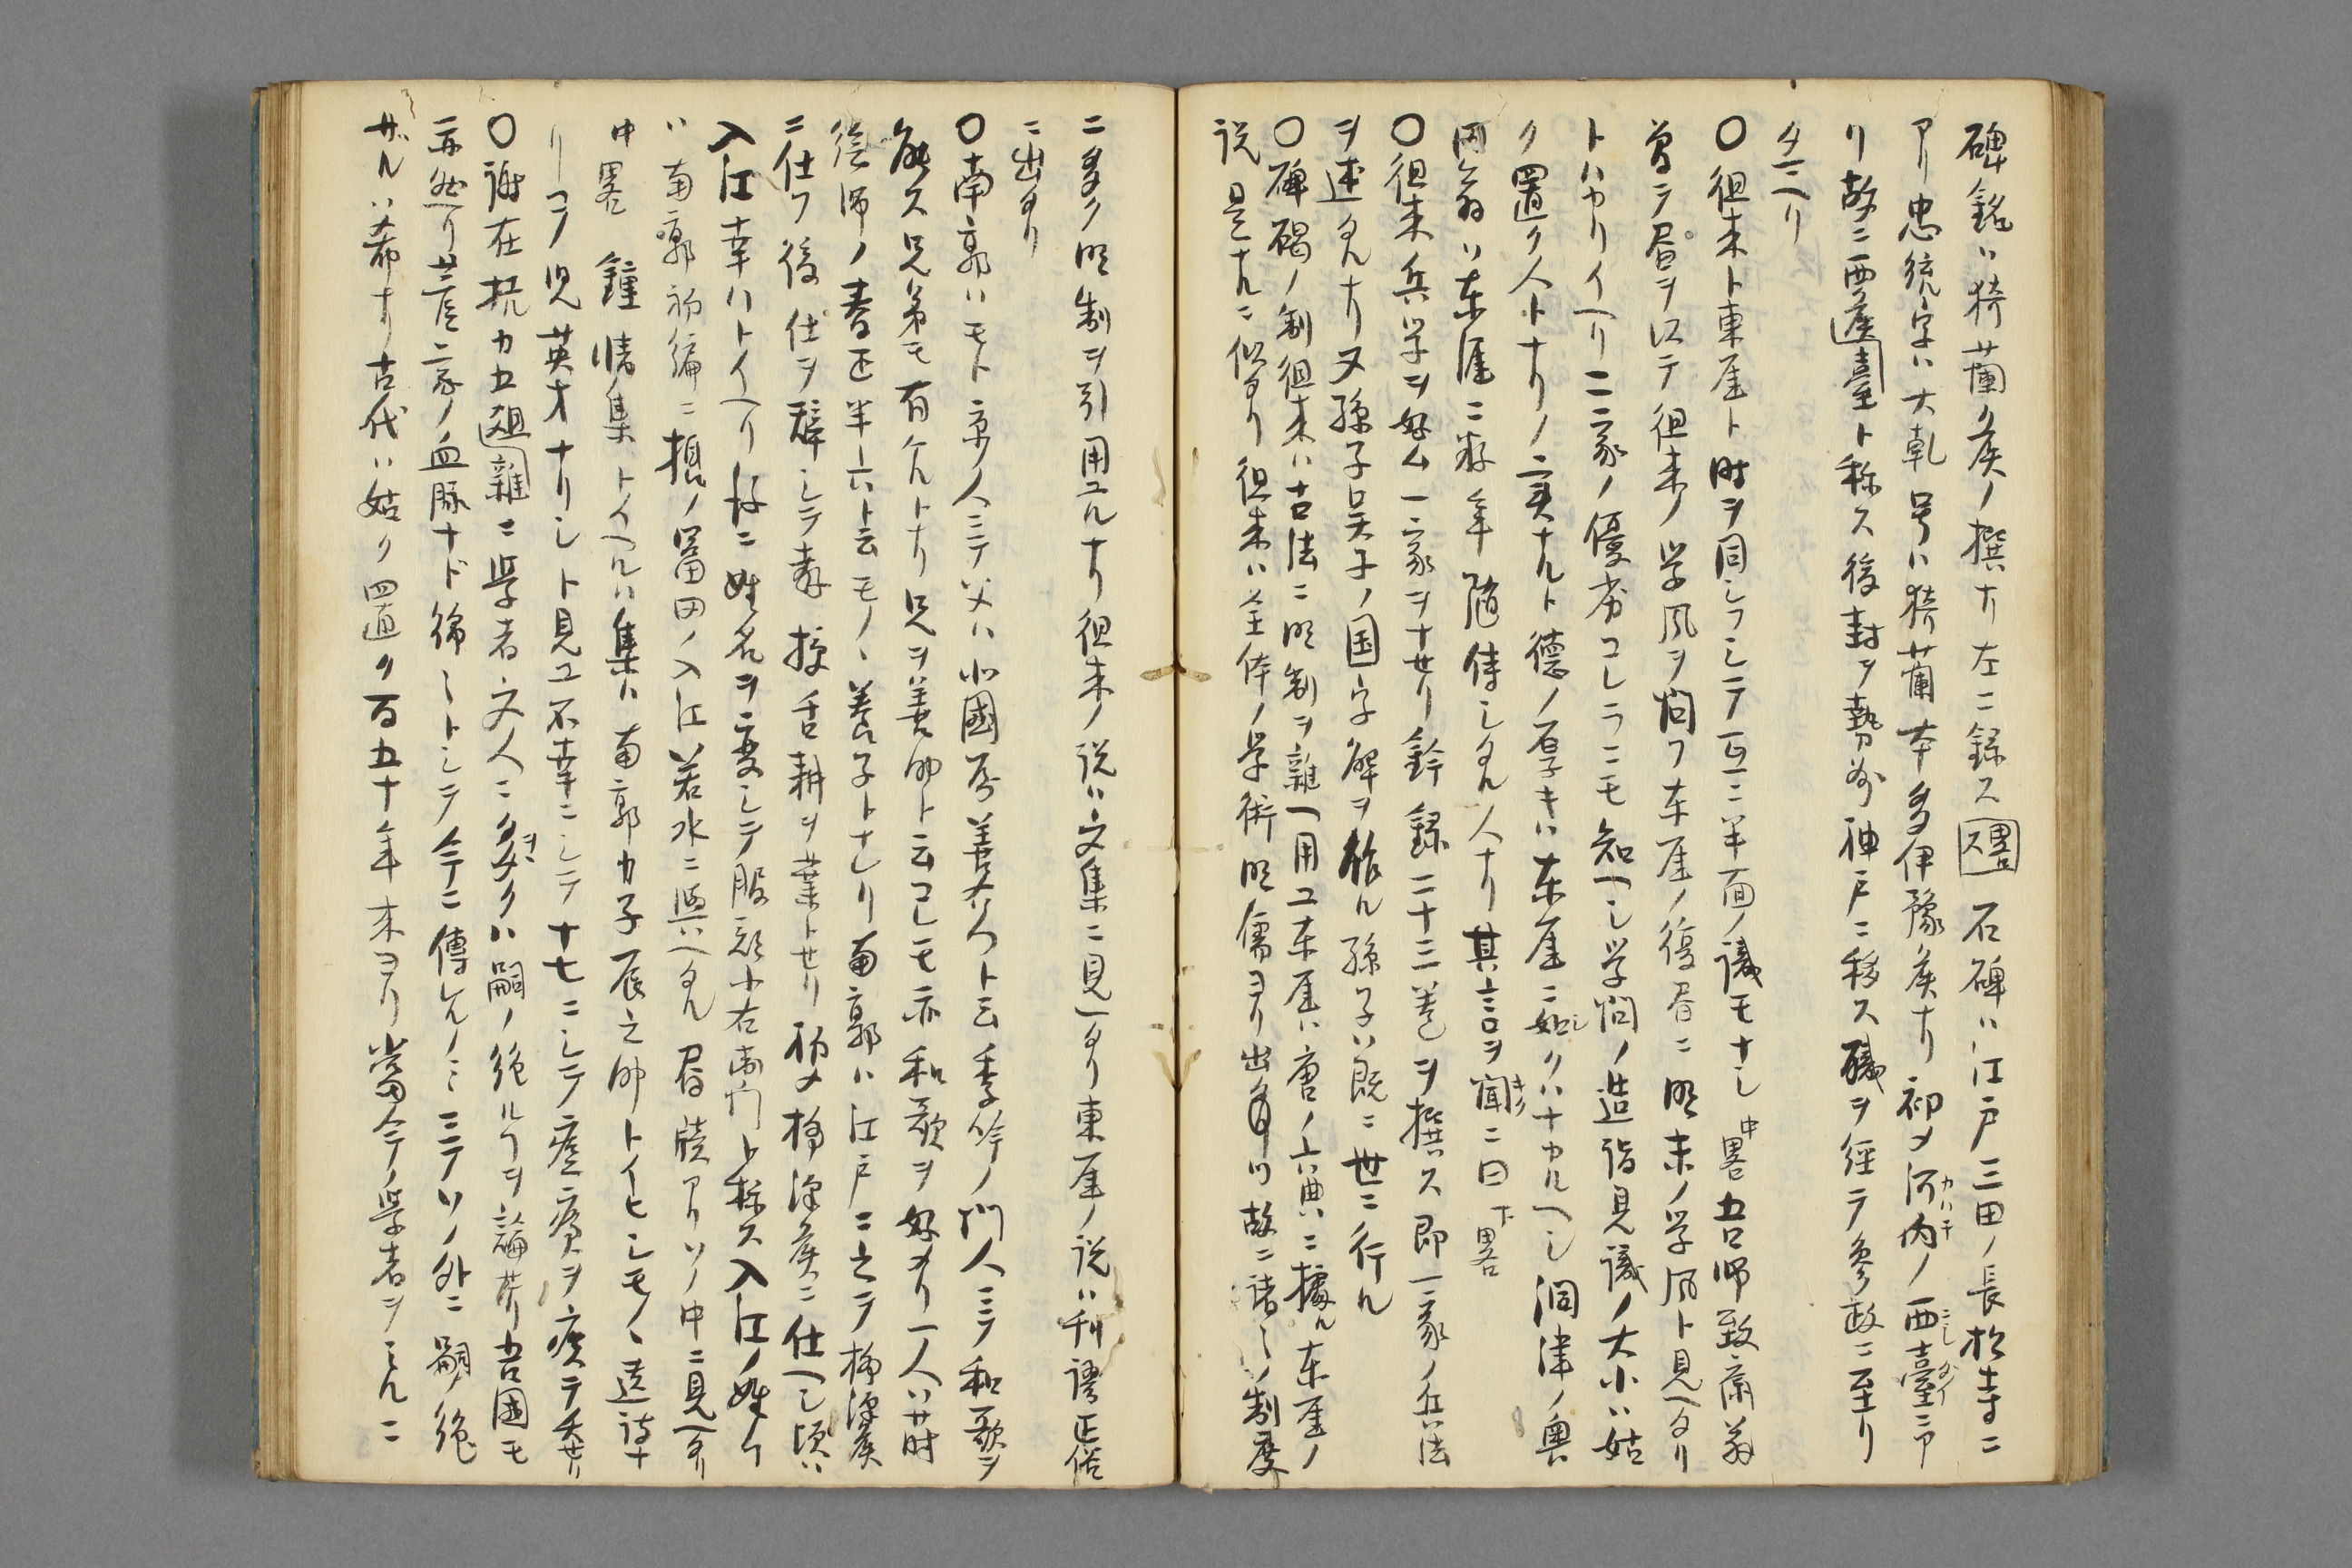 碑銘ハ猗蘭侯ノ撰ナリ左ニ録ス畧ス石碑ハ江戸三田ノ長松寺ニ
アリ忠統字ハ大乾号ハ猗蘭本多伊豫侯ナリ初メ河内ノ西臺ニア
リ故ニ西臺侯ト称ス後封ヲ勢州神戸ニ移ス職ヲ經テ参政ニ至リ
タマヘリ
〇徂来ト東厓ト時ヲ同シフシテ互ニ半面ノ識モナシ中畧吾師致齋翁
曽テ書ヲ以テ徂来ノ学風ヲ問フ東厓ノ復書ニ明末ノ学風ト見ヘタリ
トハカリイヘリ二家ノ優劣コレラニモ知ヘシ学問ノ造詣見識ノ大小ハ姑
ク置ク人トナリノ実ナルト德ノ厚キハ東厓ニ如クハナカルヘシ洞津ノ奥
田翁ハ東厓ニ数年隨侍シタル人ナリ其言ヲ聞ニ曰下畧
〇徂来兵学ヲ好ム一家ヲナセリ鈐録二十三巻ヲ撰ス即一家ノ兵法
ヲ述タルナリ又孫子呉子ノ国字解ヲ作ル孫子ハ既ニ世ニ行ル
〇碑碣ノ制徂来ハ古法ニ明制ヲ雜ヘ用ユ東厓ハ唐ノ六典ニ據ル東厓ノ
説是ナルニ似タリ徂来ハ全体ノ学術明儒ヨリ出タリ故ニ諸〻ノ制度
ニ多ク明制ヲ引用ユルナリ徂来ノ説ハ文集ニ見ヘタリ東厓ノ説ハ刊謬正俗
ニ出タリ
〇南郭ハモト京ノ人ニテ父ハ小國屋善右ヱ門ト云季吟ノ門人ニテ和歌ヲ
能ス兄弟モ有ケルトナリ兄ヲ善助ト云コレモ亦和歌ヲ好メリ一人ハ其時
繪師ノ春正半六ト云モノヽ養子トナレリ南郭ハ江戸ニ之テ柳澤侯
ニ仕フ後仕ヲ辞シテ教授舌耕ヲ業トセリ初メ柳澤侯ニ仕ヘシ頃ハ
入江幸八トイヘリ後ニ姓名ヲ変シテ服部小右衛門ト称ス入江ノ姓ナリシ
ハ南郭初編ニ摂ノ冨田ノ入江若水ニ與ヘタル書牘アリソノ中ニ見ヘタリ
中畧鍾情集トイヘルハ集ハ南郭カ子辰之助トイヒシモノヽ遺詩ナ
リコノ児英才ナリシト見ユ不幸ニシテ十七ニシテ虚瘵ヲ疾テ夭セリ
〇謝在杭カ五雜俎ニ学者文人ニ多クハ嗣ノ絶ルフヲ論セリ吾国モ
亦然リ菅江二家ノ血脉ナド綿〻トシテ今ニ傳レルノミニテソノ外ニ嗣絶
ザルハ希ナリ古代ハ姑ク置ク百五十年来ヨリ當今ノ学者ヲミルニ